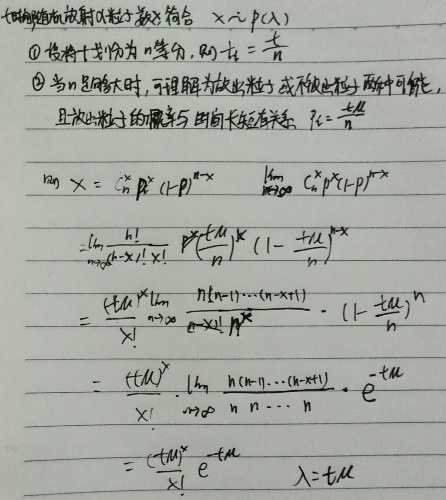 t时间随机放射α粒子数x符合 x~p(λ)
① 设将t划分为n等分, 则 tᵢ = t/n
② 当n足够大时, 可理解为放出粒子或不放出粒子两种可能,
且放出粒子的概率与时间长短有关系 Pᵢ = tμ/n
则 X = Cₙˣ pˣ (1-p)ⁿ⁻ˣ lim n→∞ Cₙˣ pˣ (1-p)ⁿ⁻ˣ
= lim n→∞ n!/(n-x)! x! (tμ/n)ˣ (1 - tμ/n)ⁿ⁻ˣ
= (tμ)ˣ/x! lim n→∞ n(n-1)···(n-x+1)/nˣ · (1 - tμ/n)ⁿ
= (tμ)ˣ/x! · lim n→∞ n(n-1)···(n-x+1)/n n ··· n · e^-tμ
= (tμ)ˣ/x! e^-tμ λ=tμ